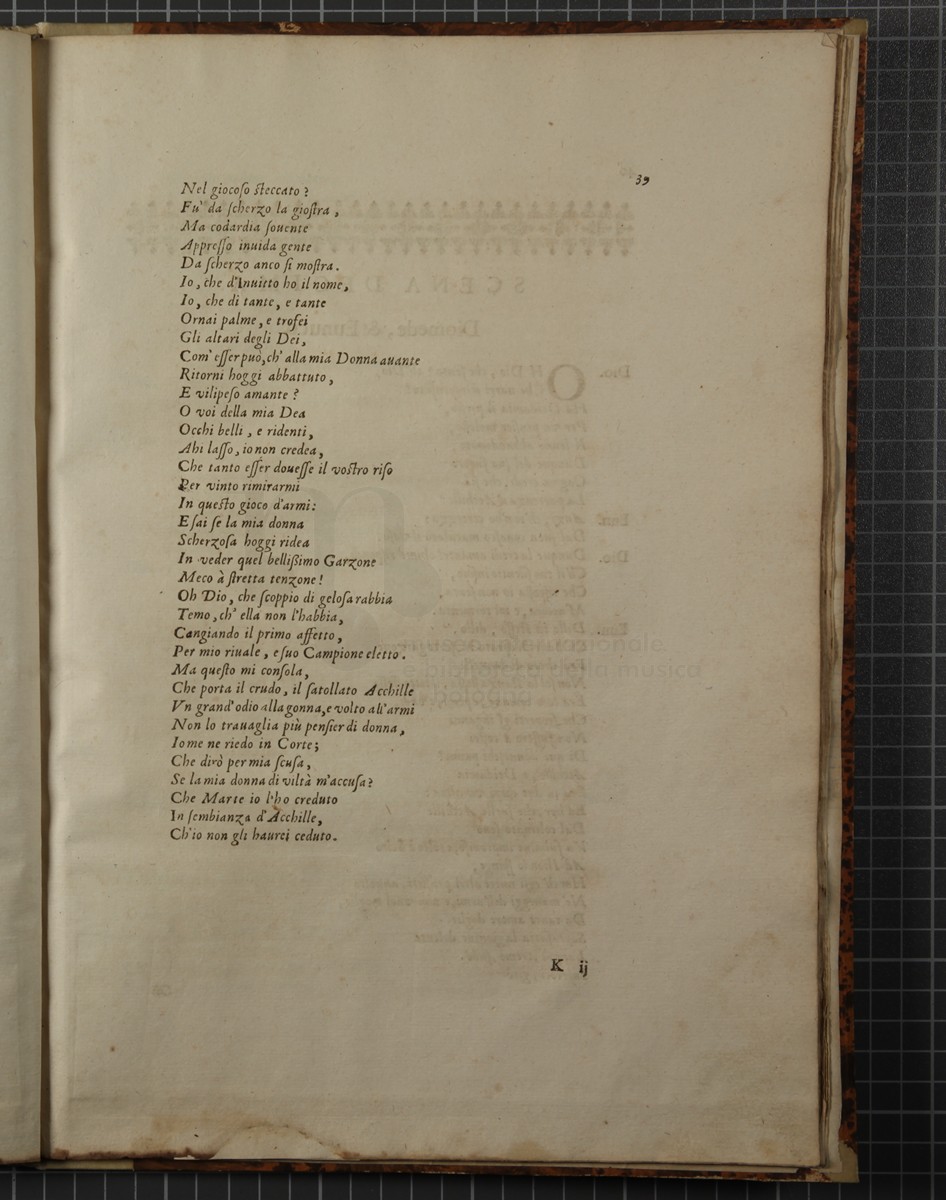 39
Nel giocoſo ſteccato ?
Fu' da ſcherzo la gioſtra ,
Ma codardia ſouente
Appreſſo inuida gente
Da ſcherzo anco ſi moſtra .
Io , che d'Inuitto ho il nome ,
Io , che di tante , e tante
Ornai palme , e trofei
Gli altari degli Dei ,
Com' eſſer può , ch' alla mia Donna auante
Ritorni hoggi abbattuto ,
E vilipeſo amante ?
O voi della mia Dea
Occhi belli , e ridenti ,
Ahi laſſo , io non credea ,
Che tanto eſſer doueſſe il voſtro riſo
Per vinto rimirarmi
In queſto gioco d'armi :
E ſai ſe la mia donna
Scherzoſa hoggi ridea
In veder quel belliſſimo Garzone
Meco à ſtretta tenzone !
Oh Dio , che ſcoppio di geloſa rabbia
Temo , ch' ella non l'habbia ,
Cangiando il primo affetto ,
Per mio riuale , e ſuo Campione eletto .
Ma queſto mi conſola ,
Che porta il crudo , il ſatollato Acchille
Vn grand' odio alla gonna , e volto all'armi
Non lo trauaglia più penſier di donna ,
Io me ne riedo in Corte ;
Che dirò per mia ſcuſa ,
Se la mia donna di viltà m'accuſa ?
Che Marte io l'ho creduto
In ſembianza d'Acchille ,
Ch'io non gli haurei ceduto .
K ij
museo internazionale
e biblioteca della musica
bologna